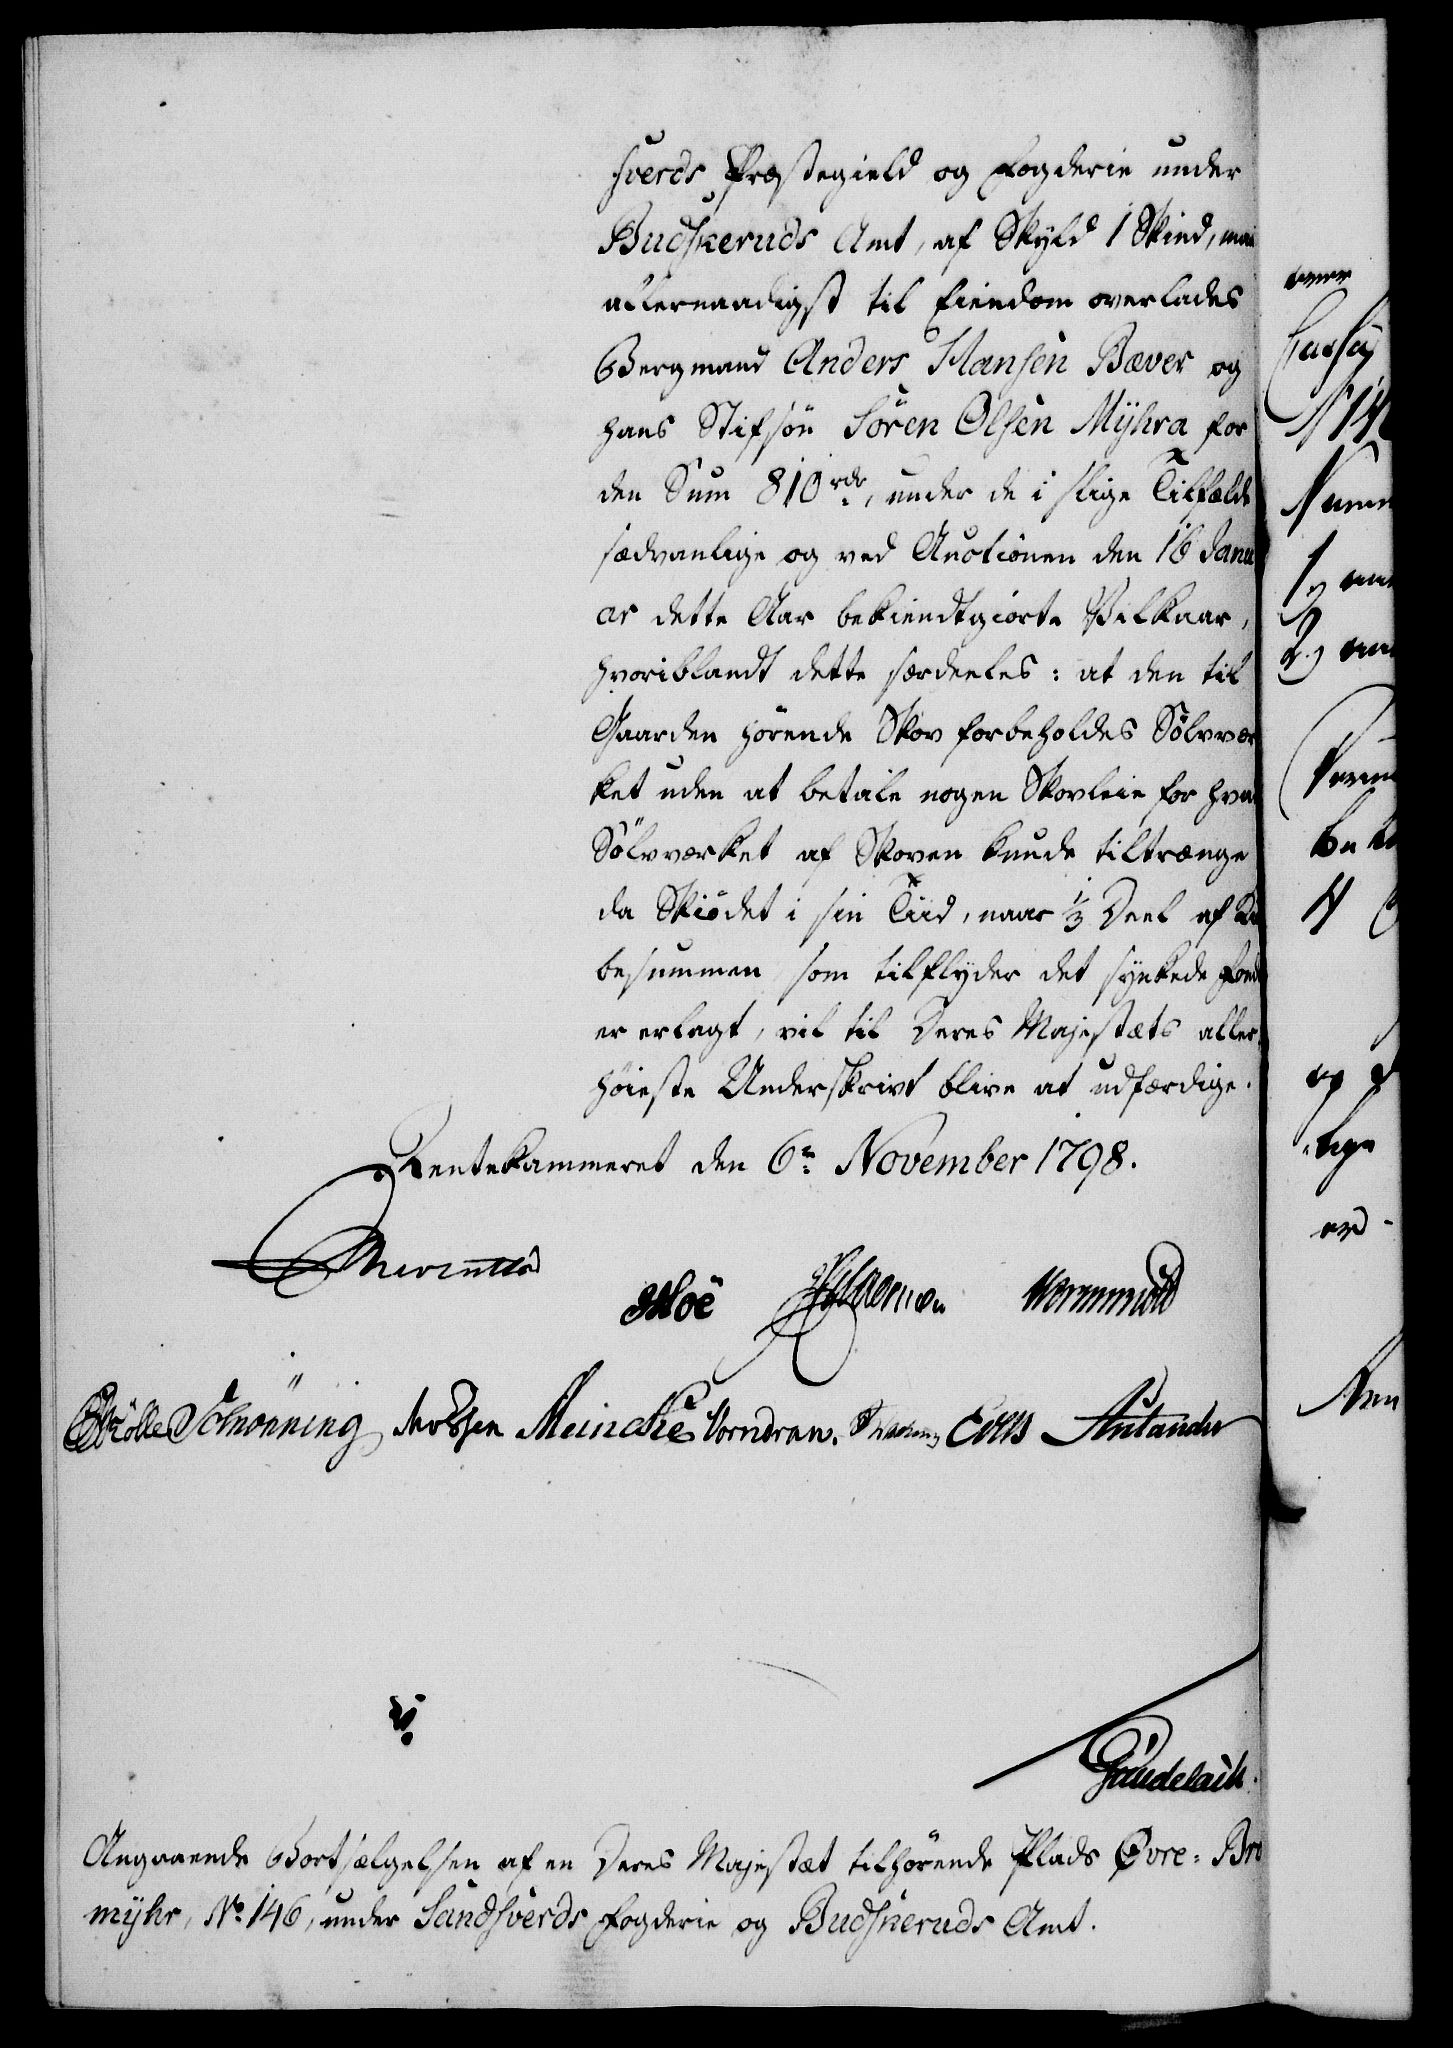 sverds Præstegield og Fogderie under
Budskeruds Amt, af Skyld 1 Skind, maa
allernaadigst til Eiendom overlades
Bergmand Anders Hansen Bæver og
hans Stifsön Sören Olsen Mÿhra for
den Sum 810 rdr, under de i slige Tilfælde
sædvanlige og ved Auctionen den 16 Janu
ar dette Aar bekiendtgiorte Vilkaar,
hvoriblandt dette særdeeles: at den til
Gaarden hörende Skov forbeholdes Sölvvær
ket uden at betale nogen Skovleie for hvad
Sölvværket af Skoven kunde tiltrænge
da Skiödet i sin Tiid, naar 1/3 Deel af Kiö
besummen som tilflyder det synkede Fond
er erlagt, vil til Deres Majestæts aller,
höieste Underskrivt blive at udfærdige.
Rentekammeret den 6te November 1798.
Moë Wormskiold
Schönning Meincke Vorndran.
Angaaende Bortsælgelsen af en Deres Majestæt tilhörende Plads Øvre-Bre
mÿhr, No. 146, under Sandsverds Fogderie og Budskeruds Amt.